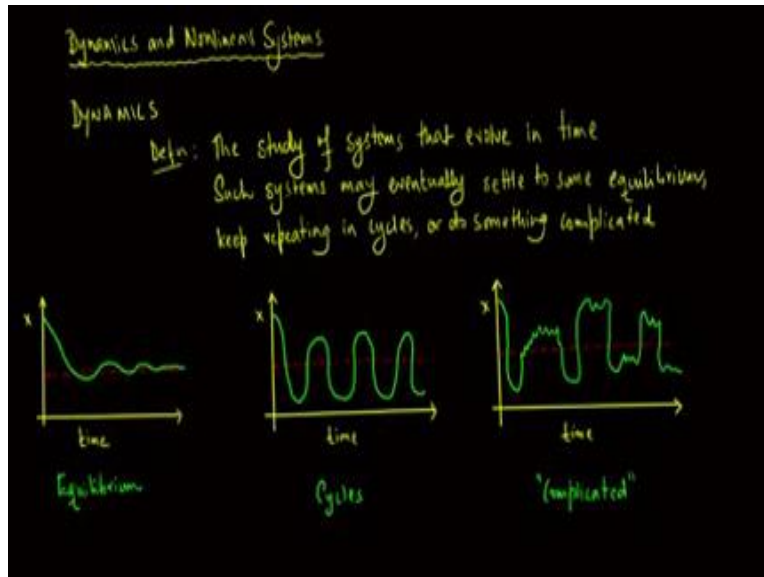 Dynamics and Nonlinear Systems
DYNAMICS
Defn: The study of systems that evolve in time
Such systems may eventually settle to some equilibrium,
keep repeating in cycles, or do something complicated
x
time
Equilibrium
x
time
Cycles
x
time
"Complicated"